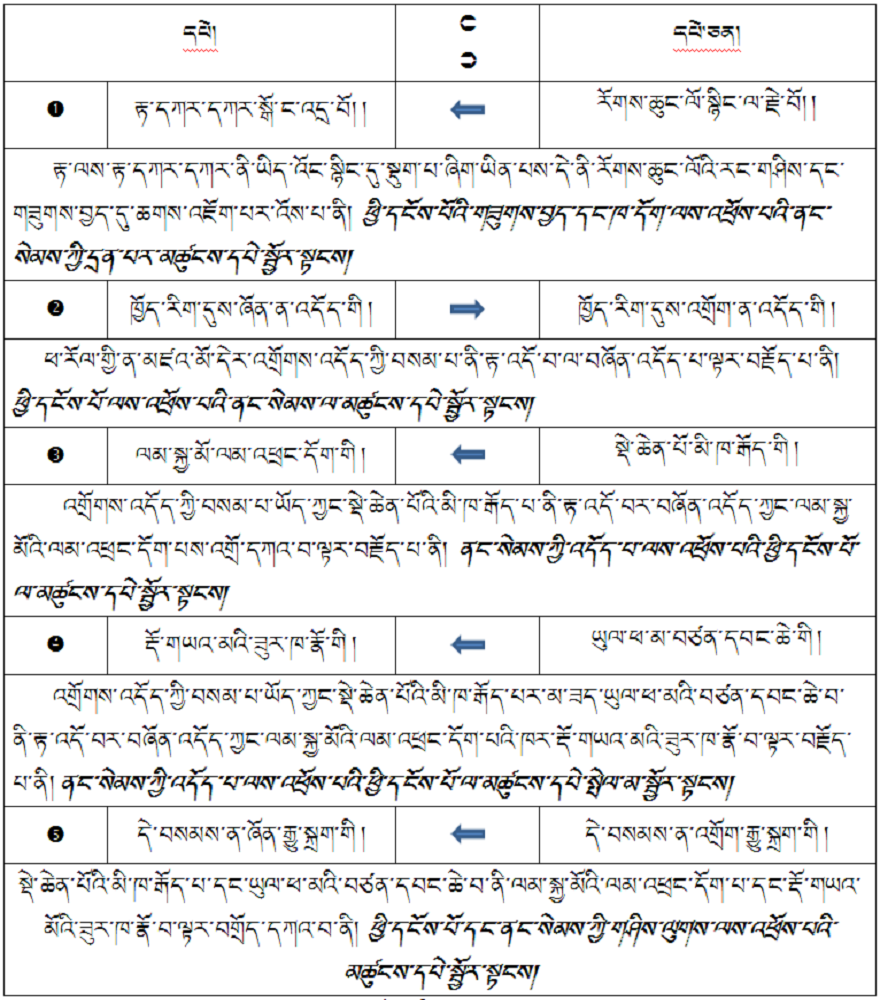 དཔེ། ⊂ ⊃ དཔེ་ཅན།
❶ རྟ་དཀར་དཀར་སྒོ་ང་འདྲ་བོ།། ⬅ རོགས་ཆུང་ལོ་སྙིང་ལ་རྗེ་བོ།།
རྟ་ལས་རྟ་དཀར་དཀར་ནི་ཡིད་འོང་སྙིང་དུ་སྡུག་པ་ཞིག་ཡིན་པས་དེ་ནི་རོགས་ཆུང་ལོའི་རང་གཤིས་དང་
གཟུགས་བྱད་དུ་ཆགས་འཇོག་པར་འོས་པ་ནི། ཕྱི་དངོས་པོའི་གཟུགས་བྱད་དང་ཁ་དོག་ལས་འཕྲོས་པའི་ནང་
སེམས་ཀྱི་དྲན་པར་མཚུངས་དཔེ་སྦྱོར་སྟངས།
❷ ཁྱོད་རིག་དུས་ཞོན་ན་འདོད་གི། ➡ ཁྱོད་རིག་དུས་འགྲོག་ན་འདོད་གི།
ཕ་རོལ་གྱི་ན་མཛའ་མོ་དེར་འགྲོགས་འདོད་ཀྱི་བསམ་པ་ནི་རྟ་འདོ་བ་ལ་བཞོན་འདོད་པ་ལྟར་བརྗོད་པ་ནི།
ཕྱི་དངོས་པོ་ལས་འཕྲོས་པའི་ནང་སེམས་ལ་མཚུངས་དཔེ་སྦྱོར་སྟངས།
❸ ལམ་སྐྱ་མོ་ལམ་འཕྲང་དོག་གི། ⬅ སྡེ་ཆེན་པོ་མི་ཁ་རྒོད་གི།
འགྲོགས་འདོད་ཀྱི་བསམ་པ་ཡོད་ཀྱང་སྡེ་ཆེན་པོའི་མི་ཁ་རྒོད་པ་ནི་རྟ་འདོ་བར་བཞོན་འདོད་ཀྱང་ལམ་སྐྱ་
མོའི་ལམ་འཕྲང་དོག་པས་འགྲོ་དཀའ་བ་ལྟར་བརྗོད་པ་ནི། ནང་སེམས་ཀྱི་འདོད་པ་ལས་འཕྲོས་པའི་ཕྱི་དངོས་པོ་
ལ་མཚུངས་དཔེ་སྦྱོར་སྟངས།
❹ རྡོ་གཡའ་མའི་ཟུར་ཁ་རྣོ་གི། ⬅ ཡུལ་ཕ་མ་བཙན་དབང་ཆེ་གི།
འགྲོགས་འདོད་ཀྱི་བསམ་པ་ཡོད་ཀྱང་སྡེ་ཆེན་པོའི་མི་ཁ་རྒོད་པར་མ་ཟད་ཡུལ་ཕ་མའི་བཙན་དབང་ཆེ་བ་
ནི་རྟ་འདོ་བར་བཞོན་འདོད་ཀྱང་ལམ་སྐྱ་མོའི་ལམ་འཕྲང་དོག་པའི་ཁར་རྡོ་གཡའ་མའི་ཟུར་ཁ་རྣོ་བ་ལྟར་བརྗོད་
པ་ནི། ནང་སེམས་ཀྱི་འདོད་པ་ལས་འཕྲོས་པའི་ཕྱི་དངོས་པོ་ལ་མཚུངས་དཔེ་སྤེལ་མ་སྦྱོར་སྟངས།
❺ དེ་བསམས་ན་ཞོན་རྒྱུ་སྐྲག་གི། ⬅ དེ་བསམས་ན་འགྲོག་རྒྱུ་སྐྲག་གི།
སྡེ་ཆེན་པོའི་མི་ཁ་རྒོད་པ་དང་ཡུལ་ཕ་མའི་བཙན་དབང་ཆེ་བ་ནི་ལམ་སྐྱ་མོའི་ལམ་འཕྲང་དོག་པ་དང་རྡོ་གཡའ་
མོའི་ཟུར་ཁ་རྣོ་བ་ལྟར་བགྲོད་དཀའ་བ་ནི། ཕྱི་དངོས་པོ་དང་ནང་སེམས་ཀྱི་གཤིས་ལུགས་ལས་འཕྲོས་པའི་
མཚུངས་དཔེ་སྦྱོར་སྟངས།